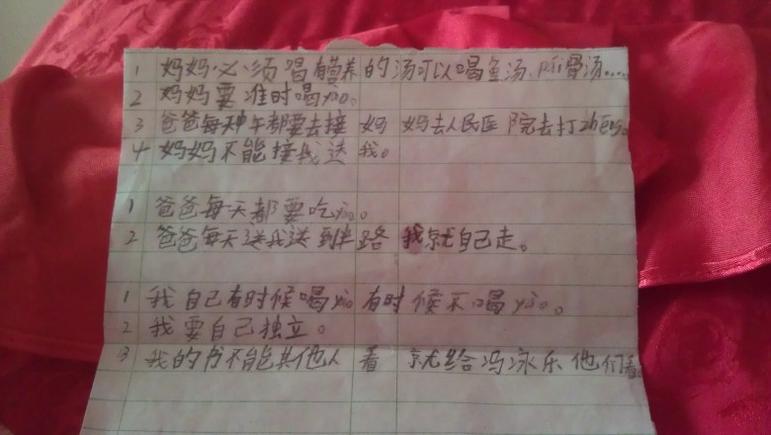 1 妈妈必须喝有营养的汤可以喝鱼汤、pái骨汤....
2 妈妈要准时喝yào。
3 爸爸每天中午都要去接妈妈去人民医院去打zhēn。
4 妈妈不能接我送我。
1 爸爸每天都要吃yào。
2 爸爸每天送我送到半路 我就自己走。
1 我自己有时候喝yào 有时候不喝yào。
2 我要自己独立。
3 我的书不能其他人看 就给冯泳乐他们看。